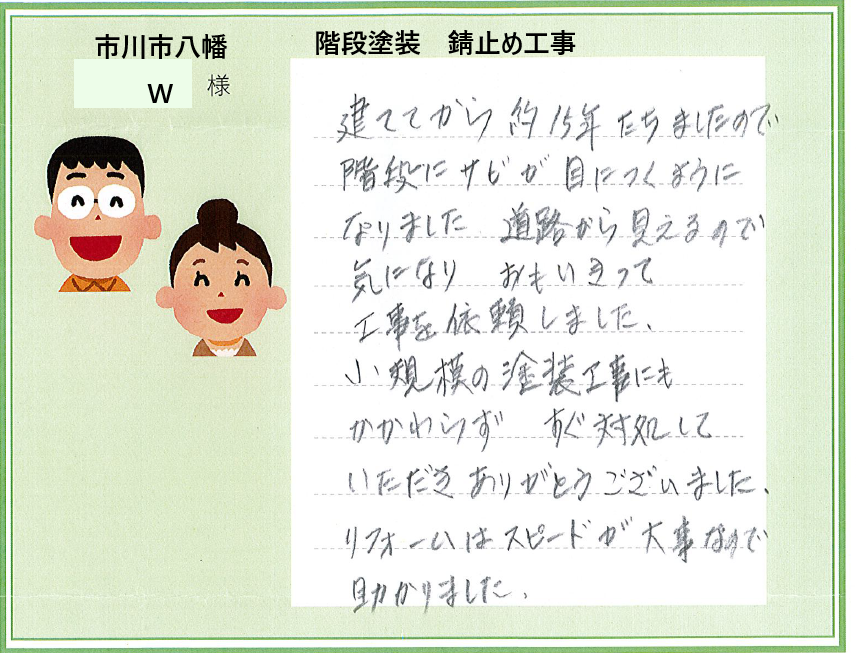 市川市八幡
W 様
階段塗装　錆止め工事
建ててから 約15年 たちましたので
階段に サビが 目につくように
なりました 道路から 見えるので
気になり おもいきって
工事を依頼しました、
小規模の塗装工事にも
かかわらず すぐ対処して
いただき ありがとうございました、
リフォームは スピードが 大事なので
助かりました、